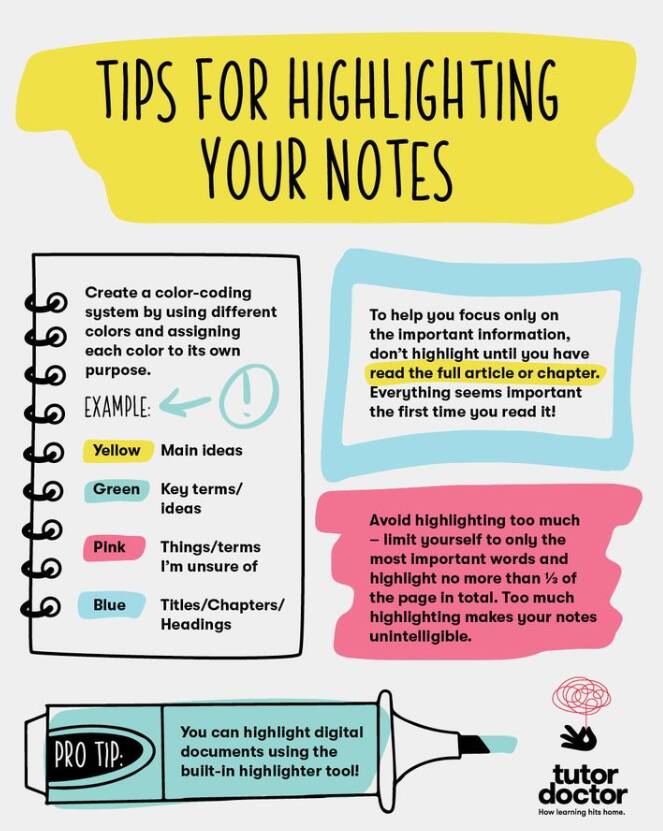 TIPS FOR HIGHLIGHTING
YOUR NOTES
Create a color-coding
system by using different
colors and assigning
each color to its own
purpose.
EXAMPLE:
!
Yellow Main ideas
Green Key terms/
ideas
Pink Things/terms
I'm unsure of
Blue Titles/Chapters/
Headings
To help you focus only on
the important information,
don't highlight until you have
read the full article or chapter.
Everything seems important
the first time you read it!
Avoid highlighting too much
– limit yourself to only the
most important words and
highlight no more than ⅓ of
the page in total. Too much
highlighting makes your notes
unintelligible.
PRO TIP:
You can highlight digital
documents using the
built-in highlighter tool!
tutor
doctor
How learning hits home.